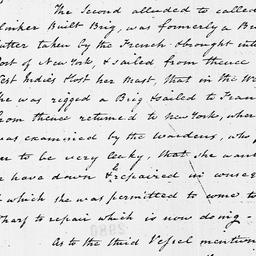 The Second alluded to called
Built Brig, was formerly a Bri
Cutter taken by the French & brought into
Port of New York, & sailed from thence
West Indies & lost her Mast, that in the We
She was rigged a Brig & sailed to Fran
from thence returned to New York, wher
was examined by the Wardens, who
to be very leaky, that she wan
have down & repaired in conseq
which she was permitted to come to
Wharf to repair which is now doing -
As to the third Vessel mention